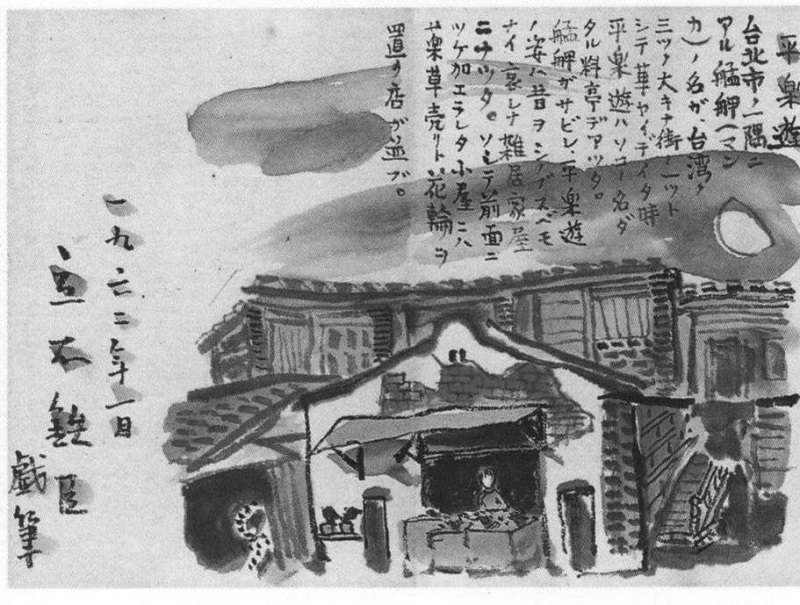 平樂遊
台北市ノ一隅ニ
アル艋舺(マン
カ)ノ名ガ、台湾ノ
三ツノ大キナ街ノ一ツト
シテ華ヤイデイタ時
平楽遊ハソコノ名ダ
タル料亭デアツタ。
艋舺ガサビレ、平楽遊
ノ姿ハ昔ヲシノブスベモ
ナイ哀レナ雑居家屋
ニナツタ。ソシテ前面ニ
ツケ加エラレタ小屋ニハ
薬草売リト花輪ヲ
置ク店ガ並ブ。
一九六二年一月
立石鉄臣
戯筆